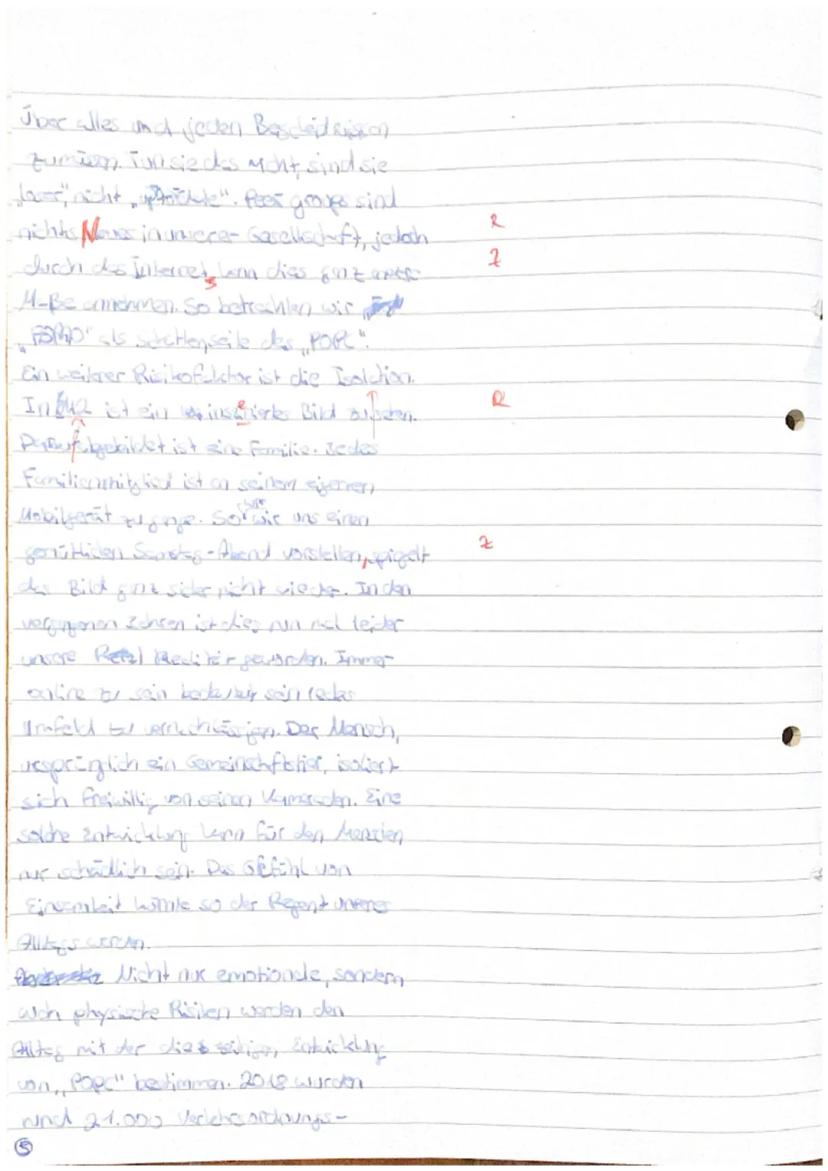 über alles und jeden Bescheid wissen
zu müssen. Tun sie das nicht, sind sie
„loser", nicht „up to date". Peer groups sind
nichts Neues in unserer Gesellschaft, jedoch R
durch das Internet kann dies ganz andere Z
Maße annehmen. So betrachten wir
„FOMO" als Schattenseite des „POPC".
Ein weiterer Risikofaktor ist die Isolation.
In M2 ist ein inszeniertes Bild zu sehen. R
Darauf abgebildet ist eine Familie. Jedes
Familienmitglied ist an seinem eigenen
Mobilgerät zu gange. So wie wir uns einen
gemütlichen Samstag-Abend vorstellen, spiegelt Z
das Bild ganz sicher nicht wieder. In den
vergangenen Jahren ist dies nun mal leider
unsere Realität geworden. Immer
online zu sein bedeutet sein reales
Umfeld zu vernachlässigen. Der Mensch,
ursprünglich ein Gemeinschaftstier, isoliert
sich freiwillig von seinen Kameraden. Eine
solche Entwicklung kann für den Menschen
nur schädlich sein. Das Gefühl von
Einsamkeit könnte so der Regent unseres
Alltags werden.
Nicht nur emotionale, sondern
auch physische Risiken werden den
Alltag mit der Entwicklung
von „POPC" bestimmen. 2018 wurden
rund 21.000 Verkehrsordnungs-
5